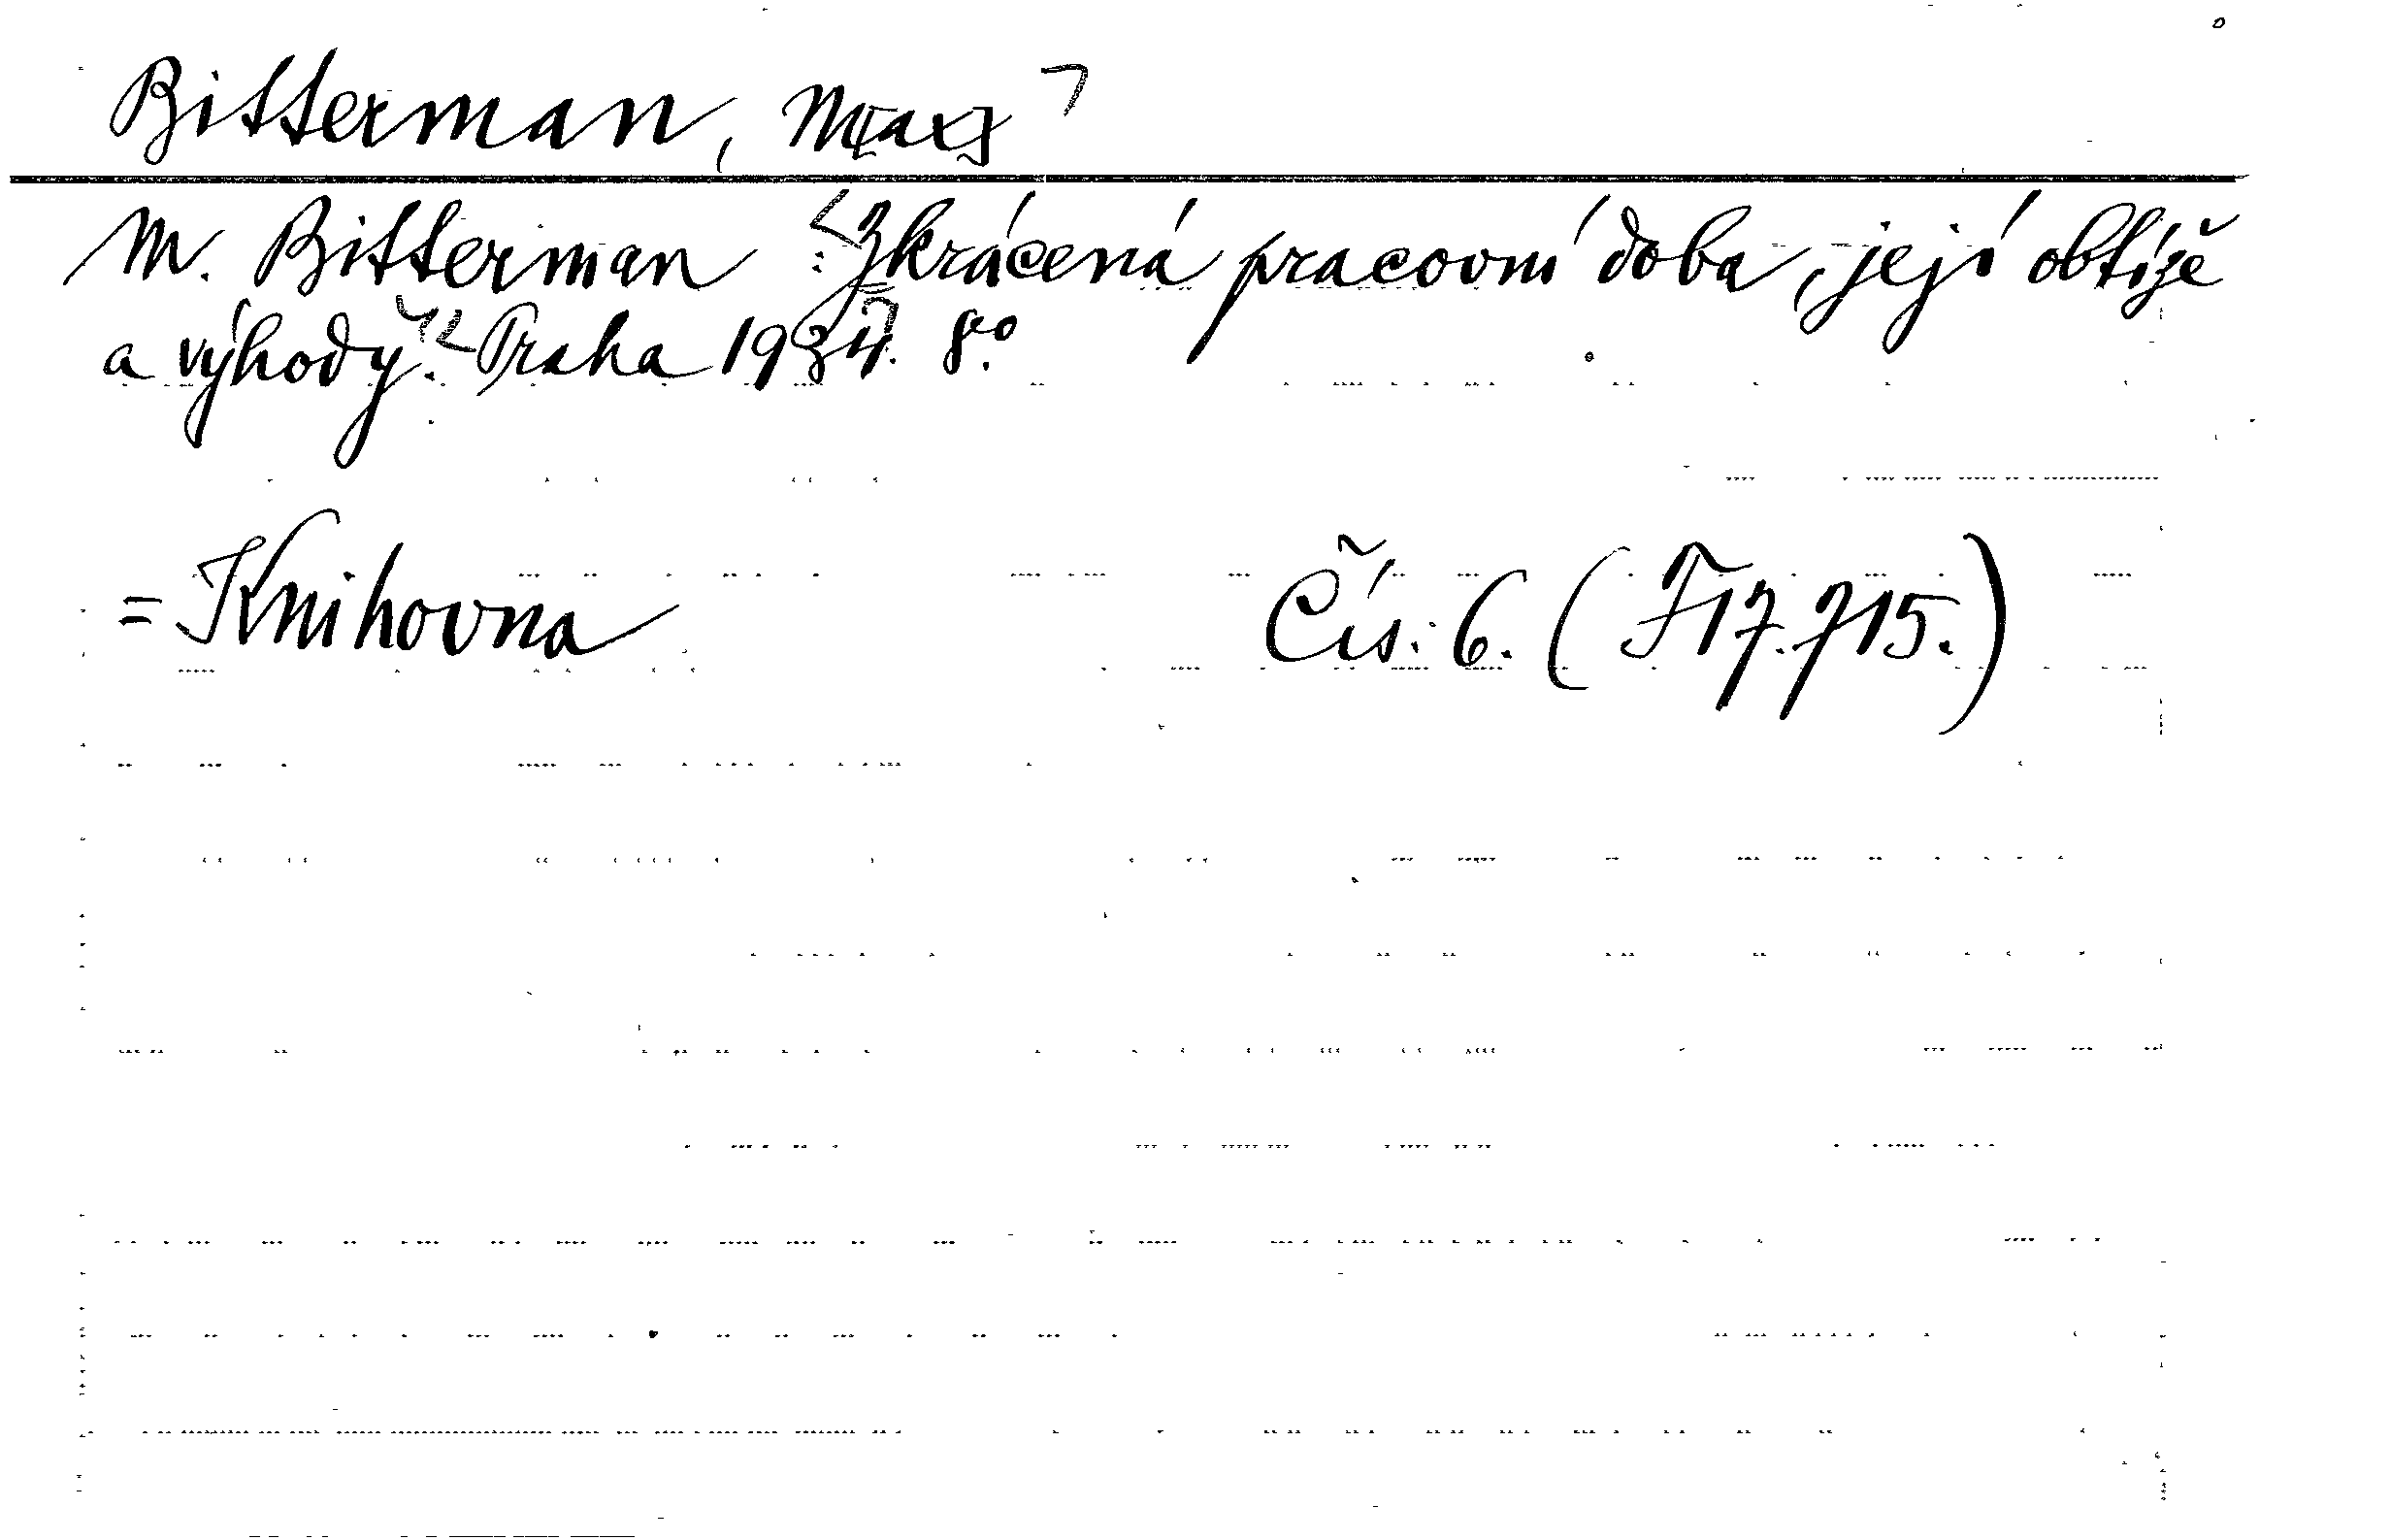 Bitterman, M[ax]
M. Bitterman : Zkrácená pracovní doba, její obtíže
a výhody. Praha 1934. 8.º
= Knihovna Čís. 6. (F 17.715.)